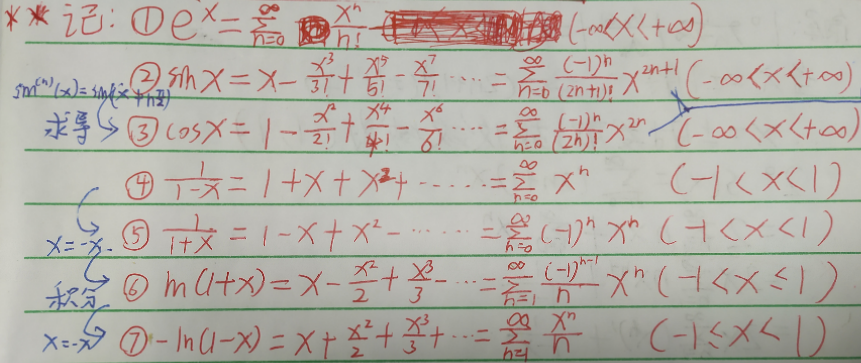 ** 记: ① e^x = ∑_{n=0}^{∞} x^n/n! (-∞<x<+∞)
② sin x = x - x^3/3! + x^5/5! - x^7/7! ...... = ∑_{n=0}^{∞} (-1)^n/(2n+1)! x^{2n+1} (-∞<x<+∞)
sin^{(n)}(x) = sin(x + nπ/2)
求导 ③ cos x = 1 - x^2/2! + x^4/4! - x^6/6! ...... = ∑_{n=0}^{∞} (-1)^n/(2n)! x^{2n} (-∞<x<+∞)
④ 1/(1-x) = 1 + x + x^2 + ...... = ∑_{n=0}^{∞} x^n (-1<x<1)
x=-x ⑤ 1/(1+x) = 1 - x + x^2 - ...... = ∑_{n=0}^{∞} (-1)^n x^n (-1<x<1)
积分 ⑥ ln(1+x) = x - x^2/2 + x^3/3 - ... = ∑_{n=1}^{∞} (-1)^{n-1}/n x^n (-1<x≤1)
x=-x ⑦ -ln(1-x) = x + x^2/2 + x^3/3 + ... = ∑_{n=1}^{∞} x^n/n (-1≤x<1)